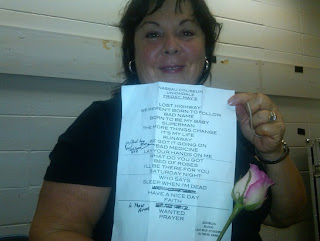 NASSAU COLISEUM
UNIONDALE
LOST HIGHWAY
WEREN'T BORN TO FOLLOW
BAD NAME
BORN TO BE MY BABY
SUPERMAN
THE MORE THINGS CHANGE
IT'S MY LIFE
RUNAWAY
WE GOT IT GOING ON
BAD MEDICINE
LAY YOUR HANDS ON ME
WHAT DO YOU GOT
BED OF ROSES
I'LL BE THERE FOR YOU
SATURDAY NIGHT
WHO SAYS
SLEEP WHEN I'M DEAD
HAVE A NICE DAY
FAITH
WANTED
PRAYER